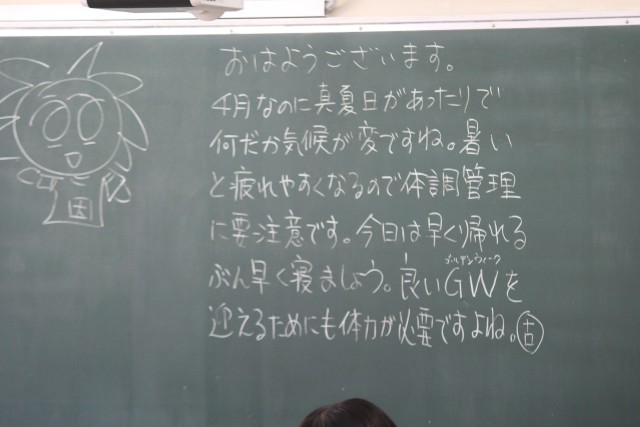 おはようございます。
4月なのに真夏日があったりで
何だか気候が変ですね。暑い
と疲れやすくなるので体調管理
に要注意です。今日は早くり帰れる
ゴールデンウィーク
ぶん早く寝ましょう。良いGWを
迎えるためにも体力が必要ですよね。古
因